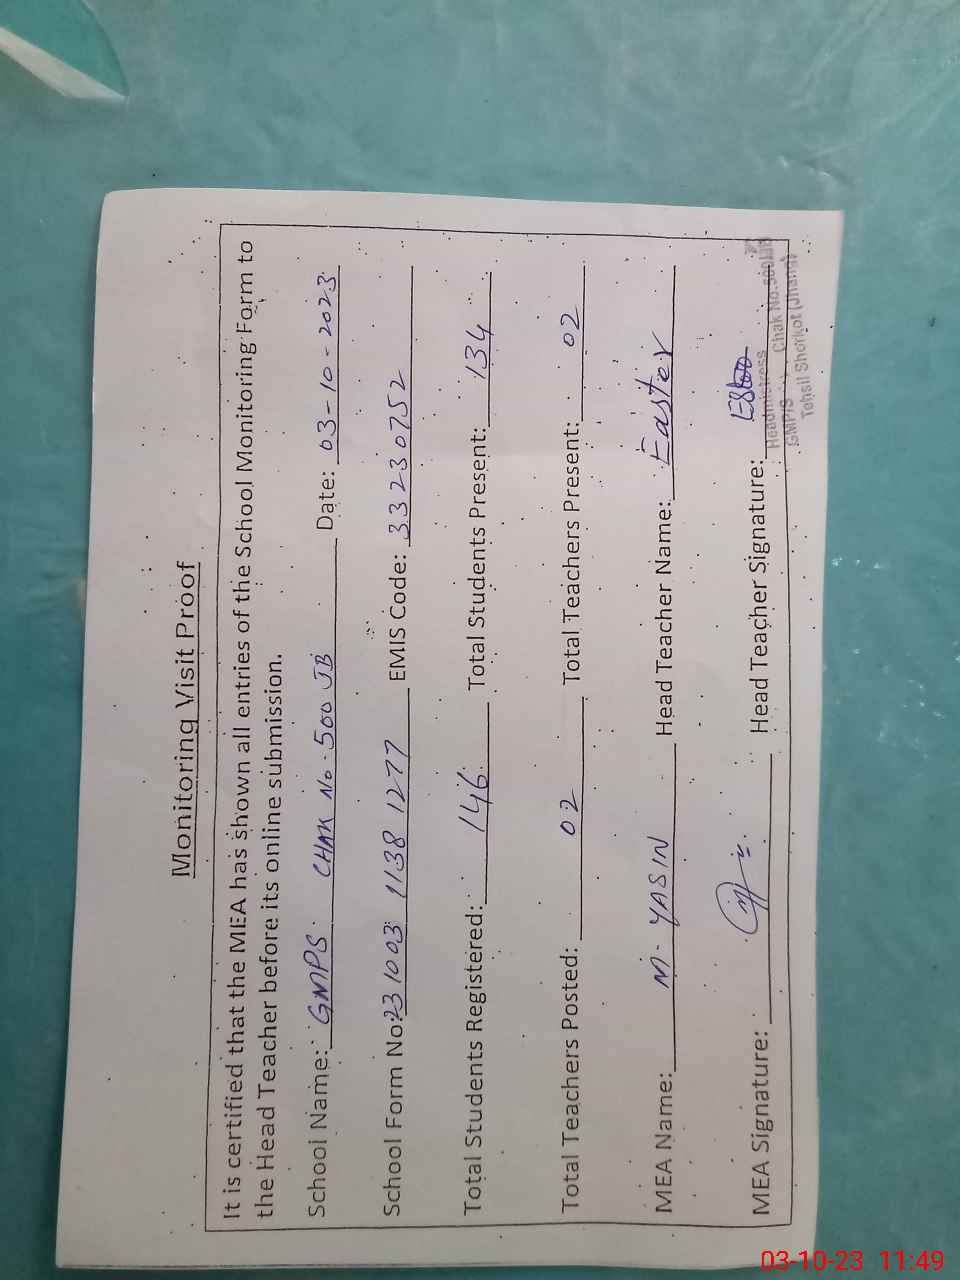 Monitoring Visit Proof
It is certified that the MEA has shown all entries of the School Monitoring Form to
the Head Teacher before its online submission.
School Name: GMPS CHAK No. 500 JB Date: 03-10-2023
School Form No: 231003 1138 1277 EMIS Code: 33230752
Total Students Registered: 146 Total Students Present: 134
Total Teachers Posted: 02 Total Teachers Present: 02
MEA Name: M. YASIN Head Teacher Name: Easter
MEA Signature: Head Teacher Signature:
Headmistress
GMP/S Chak No.500/JB
Tehsil Shorkot (Jhang)
03-10-23 11:49